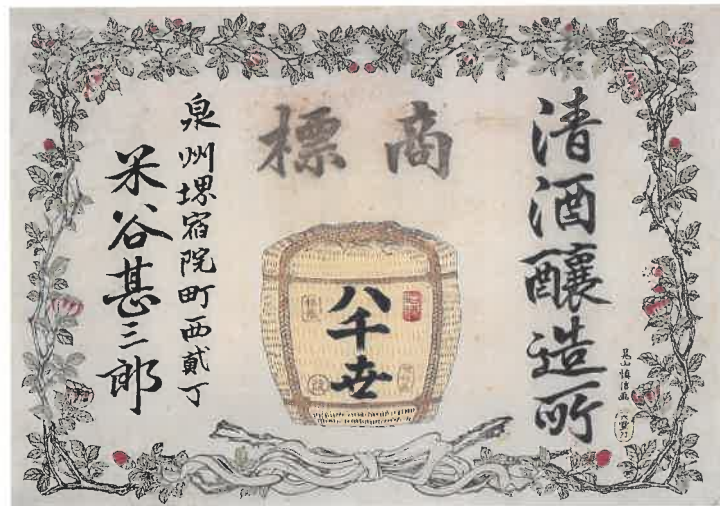 清酒醸造所
商標
八千世
泉州堺宿院町西貳丁
米谷甚三郎